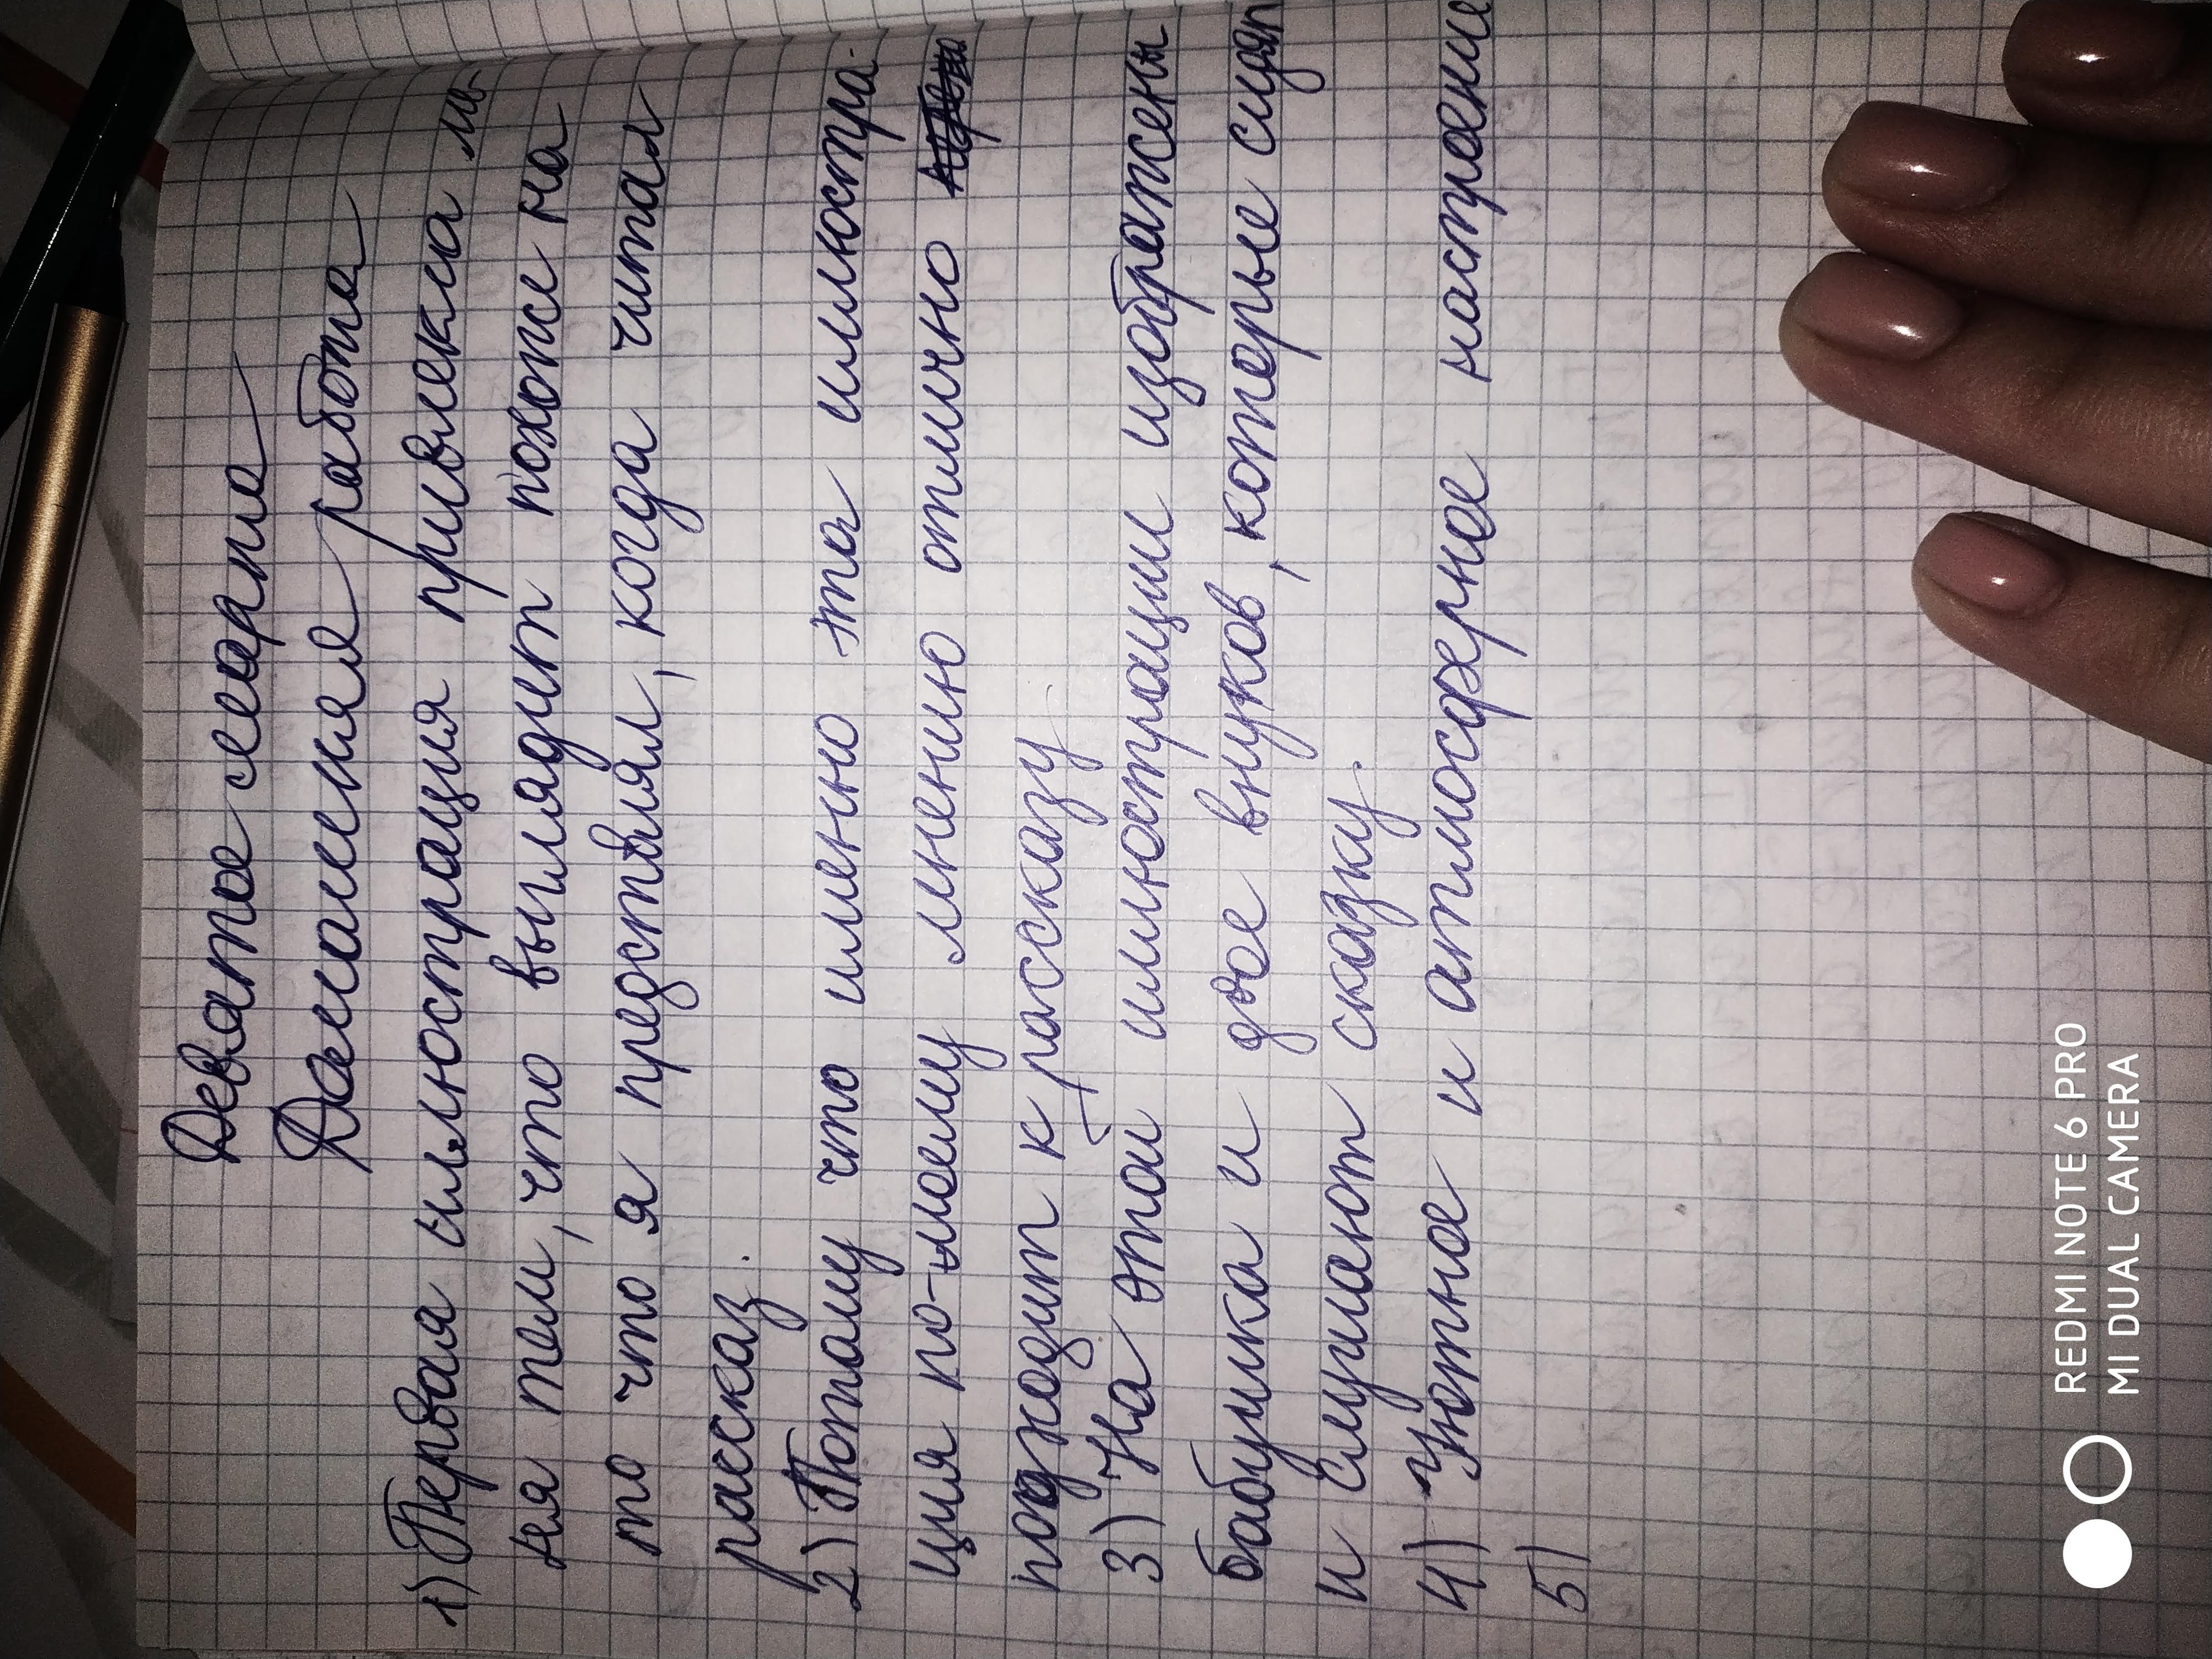 Девятое марта
Домашняя работа
1) Первая иллюстрация привлекла ме-
ня тем, что выглядит похоже на
то что я представлял, когда читал
рассказ.
2) Потому что именно эта иллюстра-
ция по-моему мнению отлично
подходит к рассказу
3) На этой иллюстрации изображены
бабушка и двое внуков, которые сидят
и слушают сказку.
4) Уютное и атмосферное настроение
5)
REDMI NOTE 6 PRO
MI DUAL CAMERA